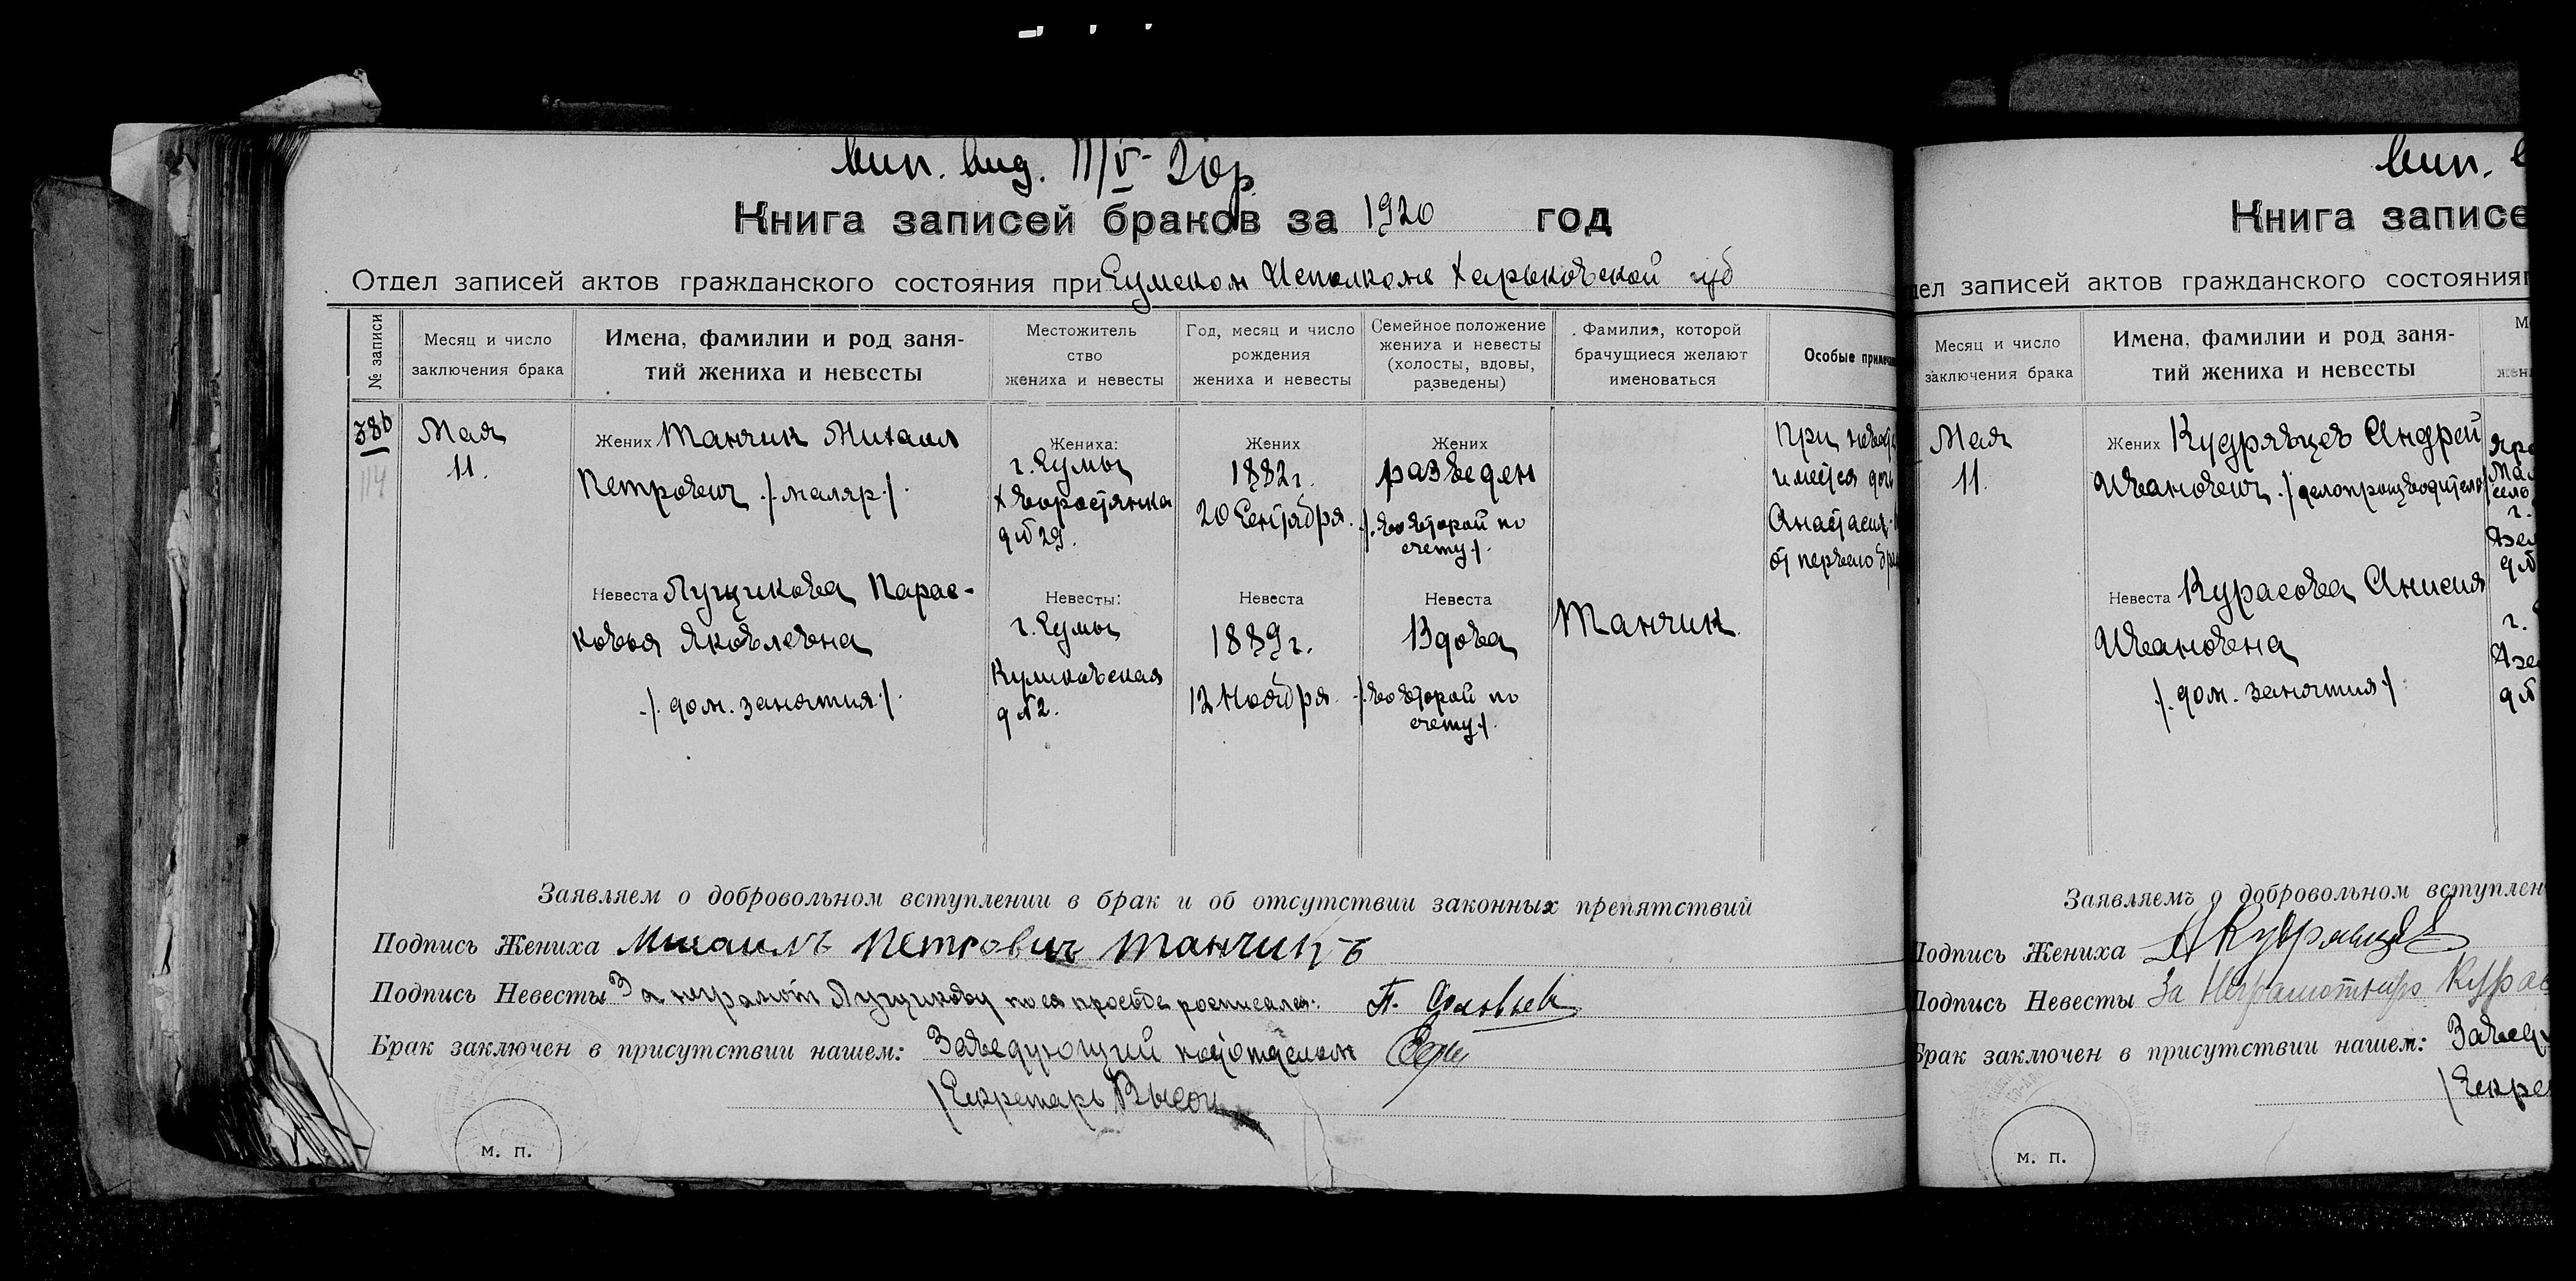 вып. выд. 11/V-20г.
Книга записей браков за 1920 год
Отдел записей актов гражданского состояния при Сумском Исполкоме Харьковской губ
№ записи
Месяц и число
заключения брака
Имена, фамилии и род заня-
тий жениха и невесты
Местожитель
ство
жениха и невесты
Год, месяц и число
рождения
жениха и невесты
Семейное положение
жениха и невесты
(холосты, вдовы,
разведены)
Фамилия, которой
брачущиеся желают
именоваться
Особые примечан
386
114
Мая
11.
Жених Танчик Михаил
Петрович /маляр/.
Жениха:
г. Сумы
Хворостянка
д № 29.
Жених
1882 г.
20 Сентября.
Жених
разведен
/. во второй по
счету /.
При невесте
имеется дочь
Анастасия
от первого бра
Невеста Лущикова Парас-
ковья Яковлевна
/. дом. занятия /.
Невесты:
г. Сумы
Куликовская
д № 2.
Невеста
1889 г.
12 Ноября.
Невеста
Вдова
/. во второй по
счету /.
Танчик
Заявляем о добровольном вступлении в брак и об отсутствии законных препятствий
Подпись Жениха Михаилъ Петровичъ Танчикъ
Подпись Невесты За неграмот Лущикову по ея просьбе росписался:
Брак заключен в присутствии нашем: Заведующий подотделом
/Секретарь
м. п.
вып.
Книга записе
дел записей актов гражданского состояния
Месяц и число
заключения брака
Имена, фамилии и род заня-
тий жениха и невесты
Мая
11.
Жених Кудрявцев Андрей
Иванович /делопроизводитель
Невеста Курасова Анисия
Ивановна
/. дом. занятия /
Заявляемъ о добровольном вступлен
Подпись Жениха А Кудрявцев
Подпись Невесты За Неграмотную Курас
Брак заключен в присутствии нашем: Завед
/Секре
м. п.